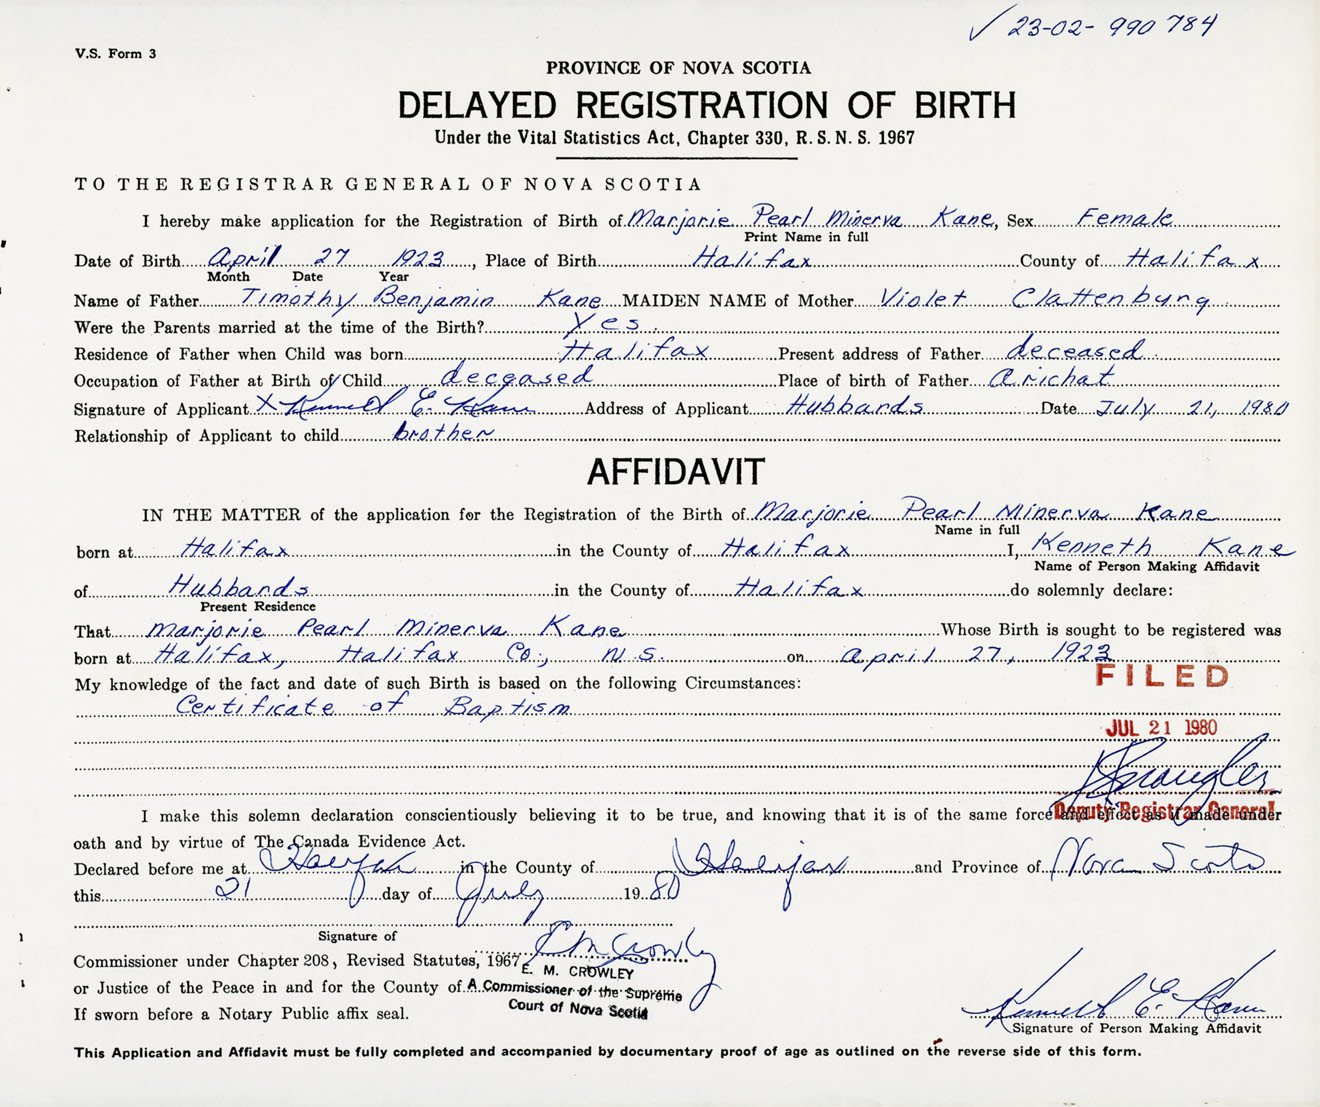 ✓ 23-02-990784
V.S. Form 3
PROVINCE OF NOVA SCOTIA
DELAYED REGISTRATION OF BIRTH
Under the Vital Statistics Act, Chapter 330, R.S.N.S. 1967
TO THE REGISTRAR GENERAL OF NOVA SCOTIA
I hereby make application for the Registration of Birth of Marjorie Pearl Minerva Kane, Sex Female
Print Name in full
Date of Birth April 27 1923, Place of Birth Halifax County of Halifax
Month Date Year
Name of Father Timothy Benjamin Kane MAIDEN NAME of Mother Violet Clattenburg
Were the Parents married at the time of the Birth? Yes.
Residence of Father when Child was born Halifax Present address of Father deceased
Occupation of Father at Birth of Child deceased Place of birth of Father Arichat
Signature of Applicant X Kenneth E. Kane Address of Applicant Hubbards Date July 21, 1980
Relationship of Applicant to child brother
AFFIDAVIT
IN THE MATTER of the application for the Registration of the Birth of Marjorie Pearl Minerva Kane
Name in full
born at Halifax in the County of Halifax I, Kenneth Kane
Name of Person Making Affidavit
of Hubbards in the County of Halifax do solemnly declare:
Present Residence
That Marjorie Pearl Minerva Kane Whose Birth is sought to be registered was
born at Halifax, Halifax Co., N.S. on April 27, 1923
My knowledge of the fact and date of such Birth is based on the following Circumstances:
FILED
Certificate of Baptism
JUL 21 1980
Deputy Registrar General
I make this solemn declaration conscientiously believing it to be true, and knowing that it is of the same force and effect as if made under
oath and by virtue of The Canada Evidence Act.
Declared before me at Halifax in the County of Halifax and Province of Nova Scotia
this 21 day of July 1980
Signature of
Commissioner under Chapter 208, Revised Statutes, 1967 E M Crowley
E. M. CROWLEY
or Justice of the Peace in and for the County of A Commissioner of the Supreme
Court of Nova Scotia
If sworn before a Notary Public affix seal.
Kenneth E. Kane
Signature of Person Making Affidavit
This Application and Affidavit must be fully completed and accompanied by documentary proof of age as outlined on the reverse side of this form.